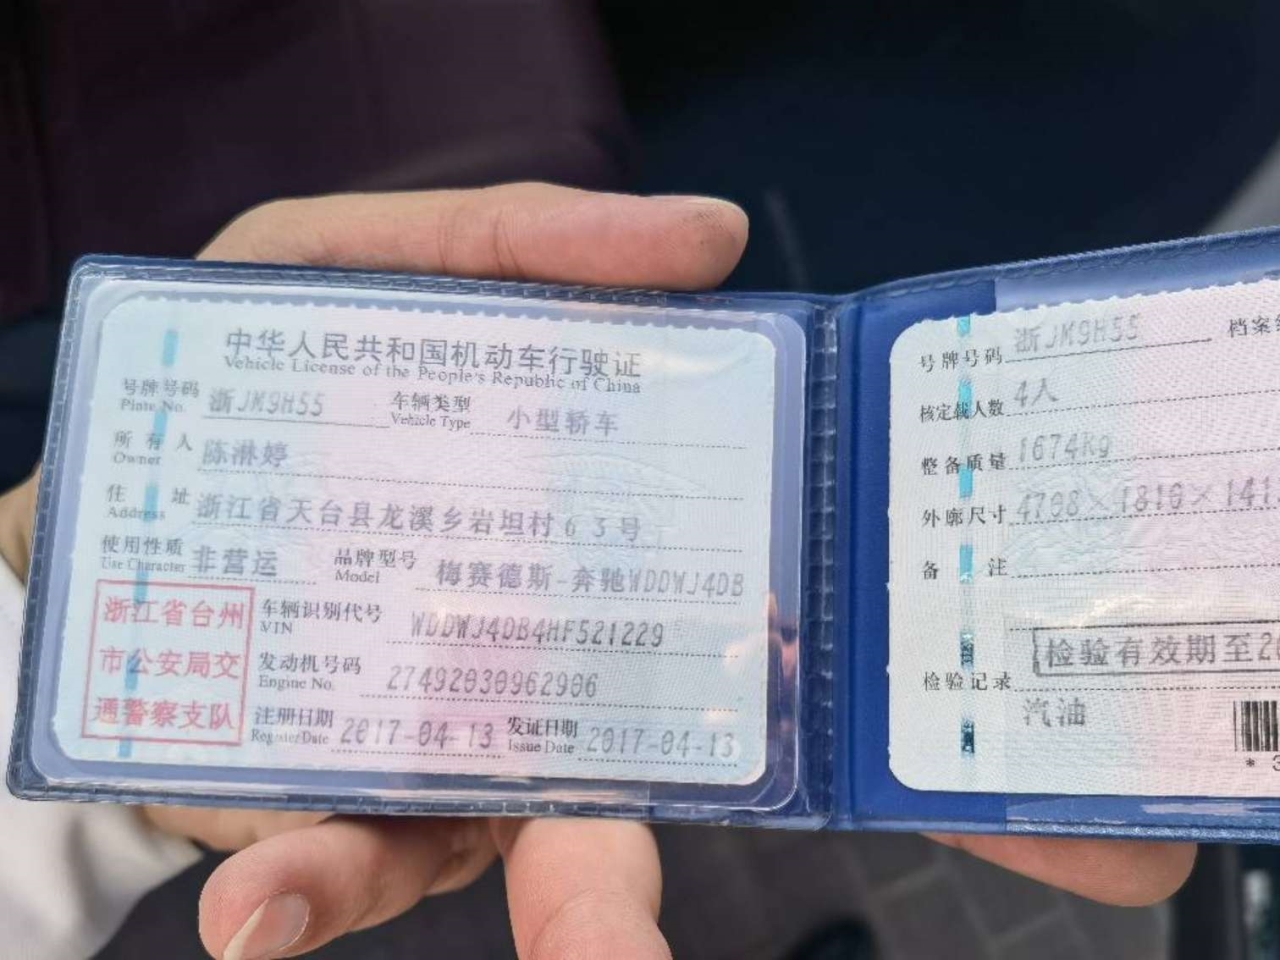 中华人民共和国机动车行驶证
Vehicle License of the People's Republic of China
号牌号码 浙JM9H55 车辆类型 小型轿车
Plate No. Vehicle Type
所有人 陈淋婷
Owner
住址 浙江省天台县龙溪乡岩坦村63号
Address
使用性质 非营运 品牌型号 梅赛德斯-奔驰WDDWJ4DB
Use Character Model
浙江省台州
市公安局交
通警察支队
车辆识别代号 WDDWJ4DB4HF521229
VIN
发动机号码 27492030962906
Engine No.
注册日期 2017-04-13 发证日期 2017-04-13
Register Date Issue Date
号牌号码 浙JM9H55 档案
核定载人数 4人
整备质量 1674Kg
外廓尺寸 4708×1810×141
备注
检验有效期至20
检验记录
汽油
* 3